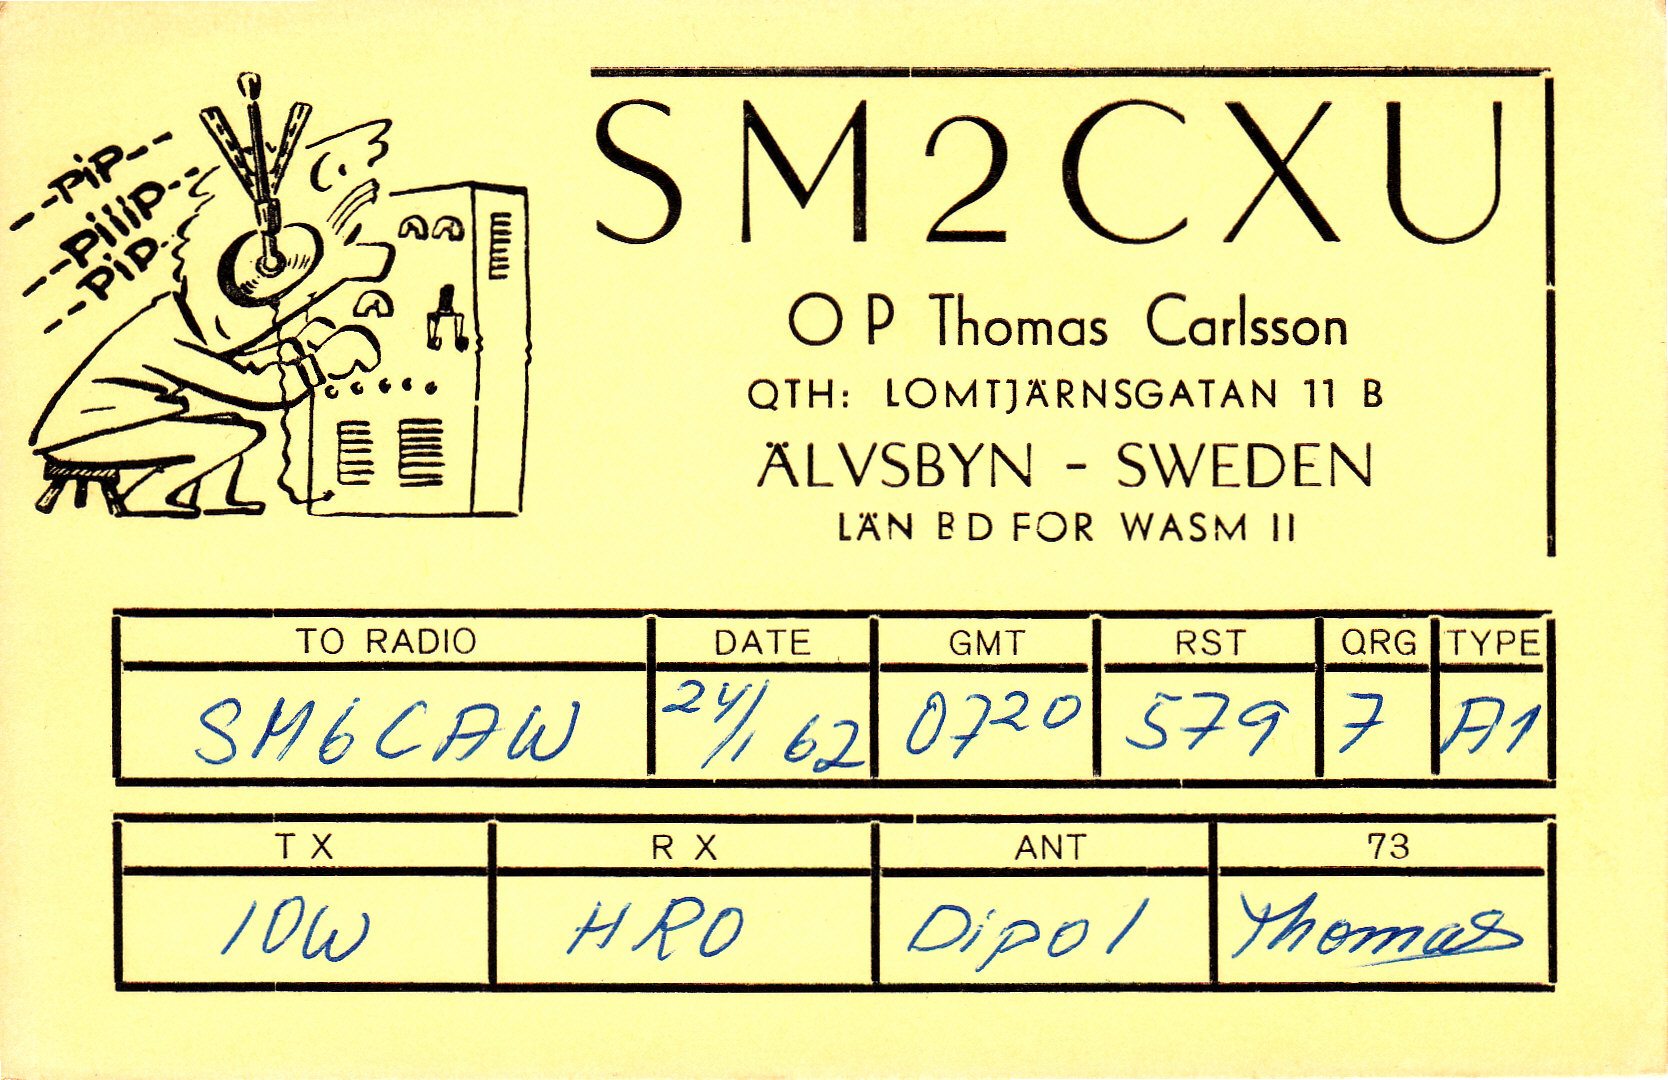 --PiP--
--Piiip--
--PiP-
SM2CXU
OP Thomas Carlsson
QTH: LOMTJÄRNSGATAN 11 B
ÄLVSBYN - SWEDEN
LÄN BD FOR WASM II
TO RADIO DATE GMT RST QRG TYPE
SM6CAW 24/1 62 0720 579 7 A1
TX RX ANT 73
10W HRO Dipol Thomas